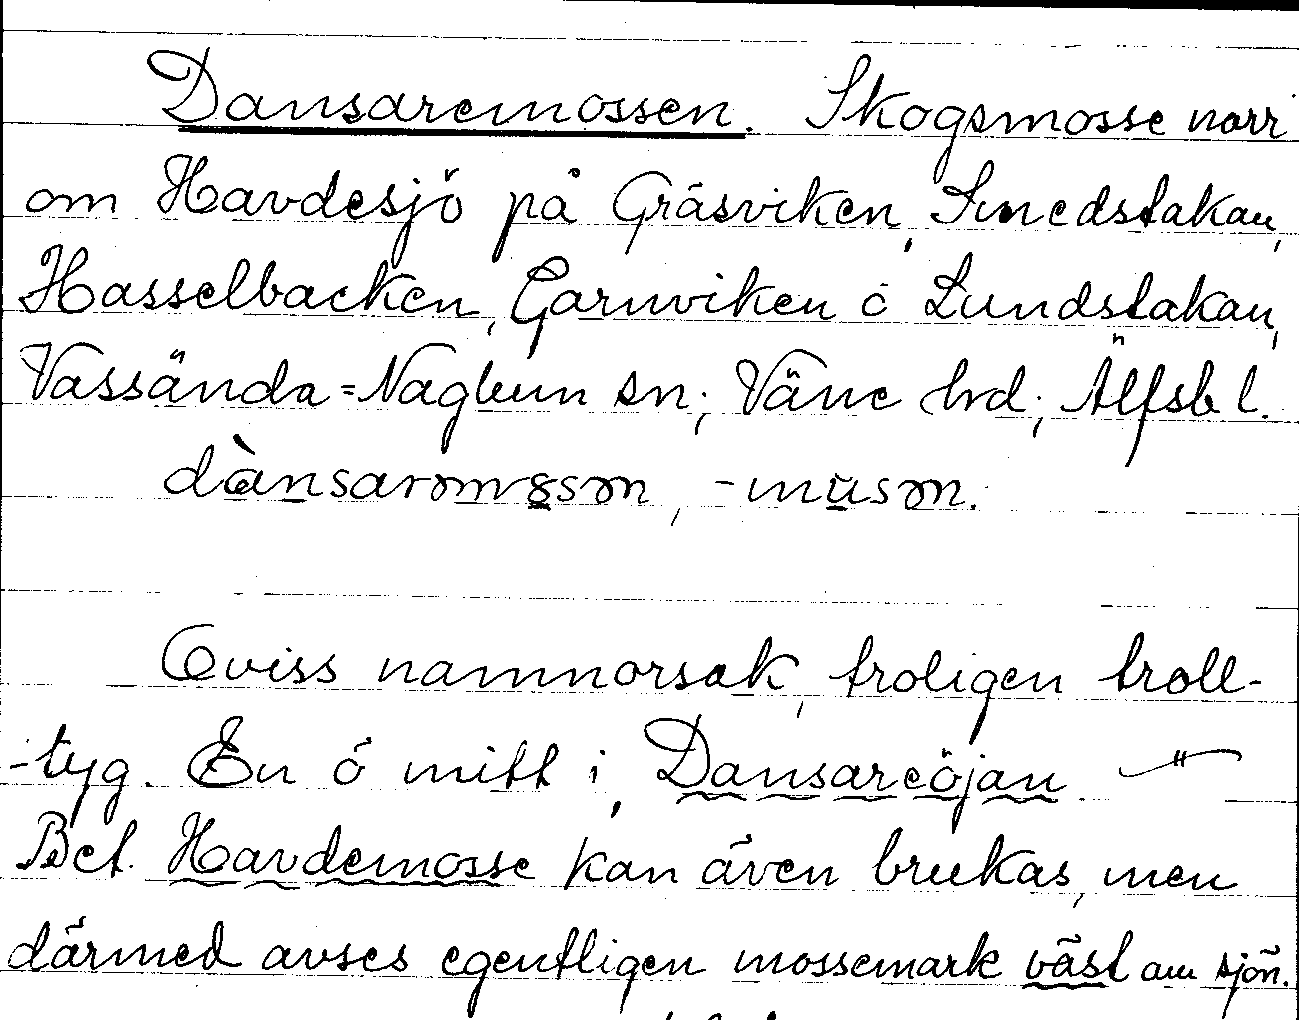 Dansaremossen. Skogsmosse norr
om Havdesjö på Gräsviken, Smedstakan,
Hasselbacken, Garnviken o Lundstakan,
Vassända=Naglum sn; Väne hrd; Älfsb l.
dànsarəmɷsən, -müsən.
Oviss namnorsak, troligen troll-
-tyg. En ö mitt i, Dansareöjan —"—
Bet. Havdemosse kan även brukas, men
därmed avses egentligen mossemark väst om sjön.